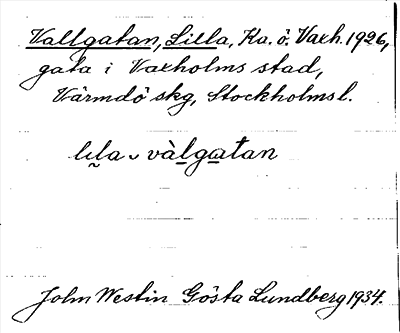 Vallgatan, Lilla, Ka. ö. Vaxh. 1926,
gata i Vaxholms stad,
Värmdö skg, Stockholmsl.
lɩla vàlgatan
John Westin Gösta Lundberg 1934.